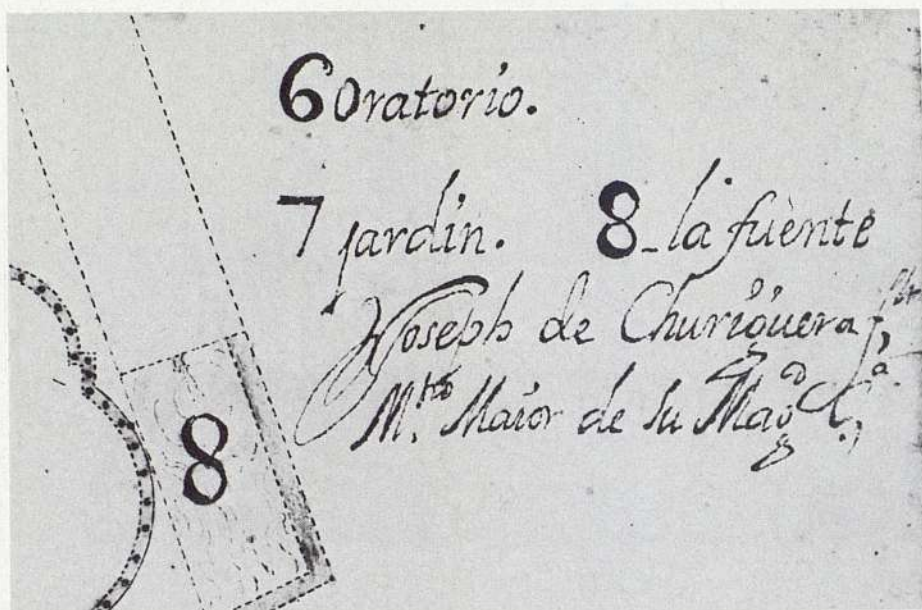 6 Oratorio.
7 jardin. 8 la fuente
Joseph de Churiguera
M.tro Maior de su Magd
8